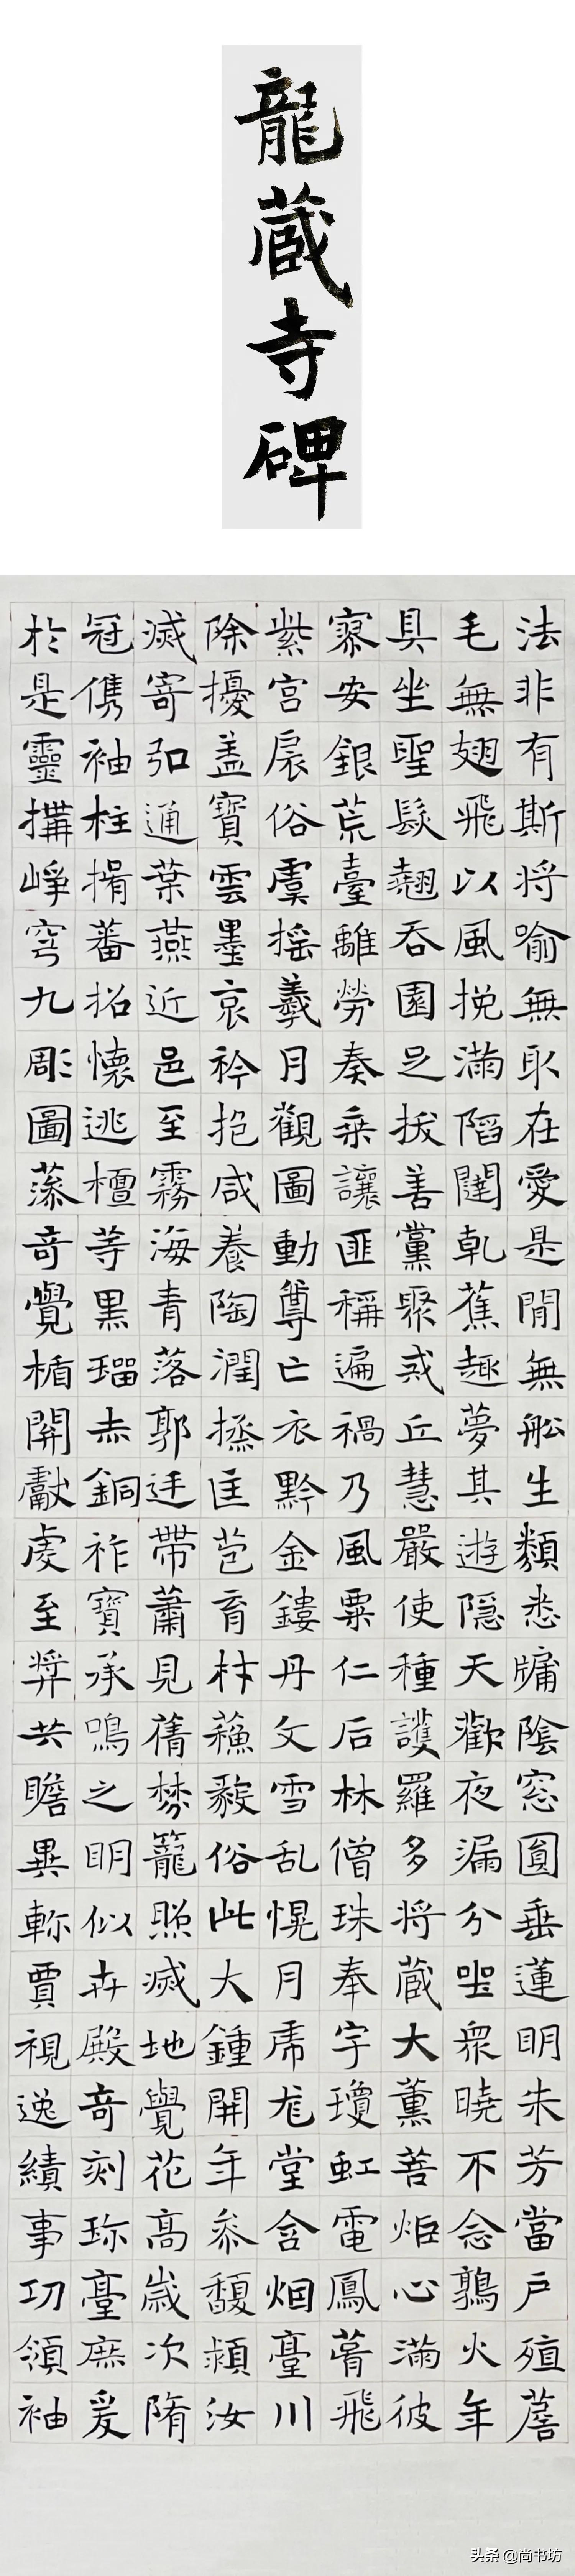 龍蔵寺碑
法非有斯將喻無取在愛是閒無舩生類悉牗陰窓圓垂蓮明朱芳當戶殖薝
毛無翅飛以風挽滿陷闥乹蕉趣夢其遊隠天歡夜漏分㘴眾曉不念鶉火年
具坐聖髮翹吞園足拔善黨聚惑丘慧嚴使種護羅多將蔵大薰善炬心滿彼
寮安銀荒臺離勞奏乗讓匪稱遍禍乃風粟仁后林僧珠奉宇瓊虹電鳳菁飛
紫宮扆俗虞摇羲月觀圖動尊亡衣黔金鏤丹文雪乱愰月虎尨堂含烟臺川
除擾盖寶雲墨哀衿抱咸養陶潤拯匡苞育材蘓毅俗此大鍾開年忝馥頻汝
滅寄弘通葉燕近邑至霧海青落郭迋帶蕭見蒨棼籠照滅地覺花高歲次隋
冠儁袖柱搰蕃拓懷逃檀等黒瑠赤銅祚寶承鳴之明似卉殿竒刻珎臺庶爰
於是靈搆崢穹九彫圖竒覺楯開獻處至弉共瞻異軿賈視逸績事功領袖
头条 @尚书坊